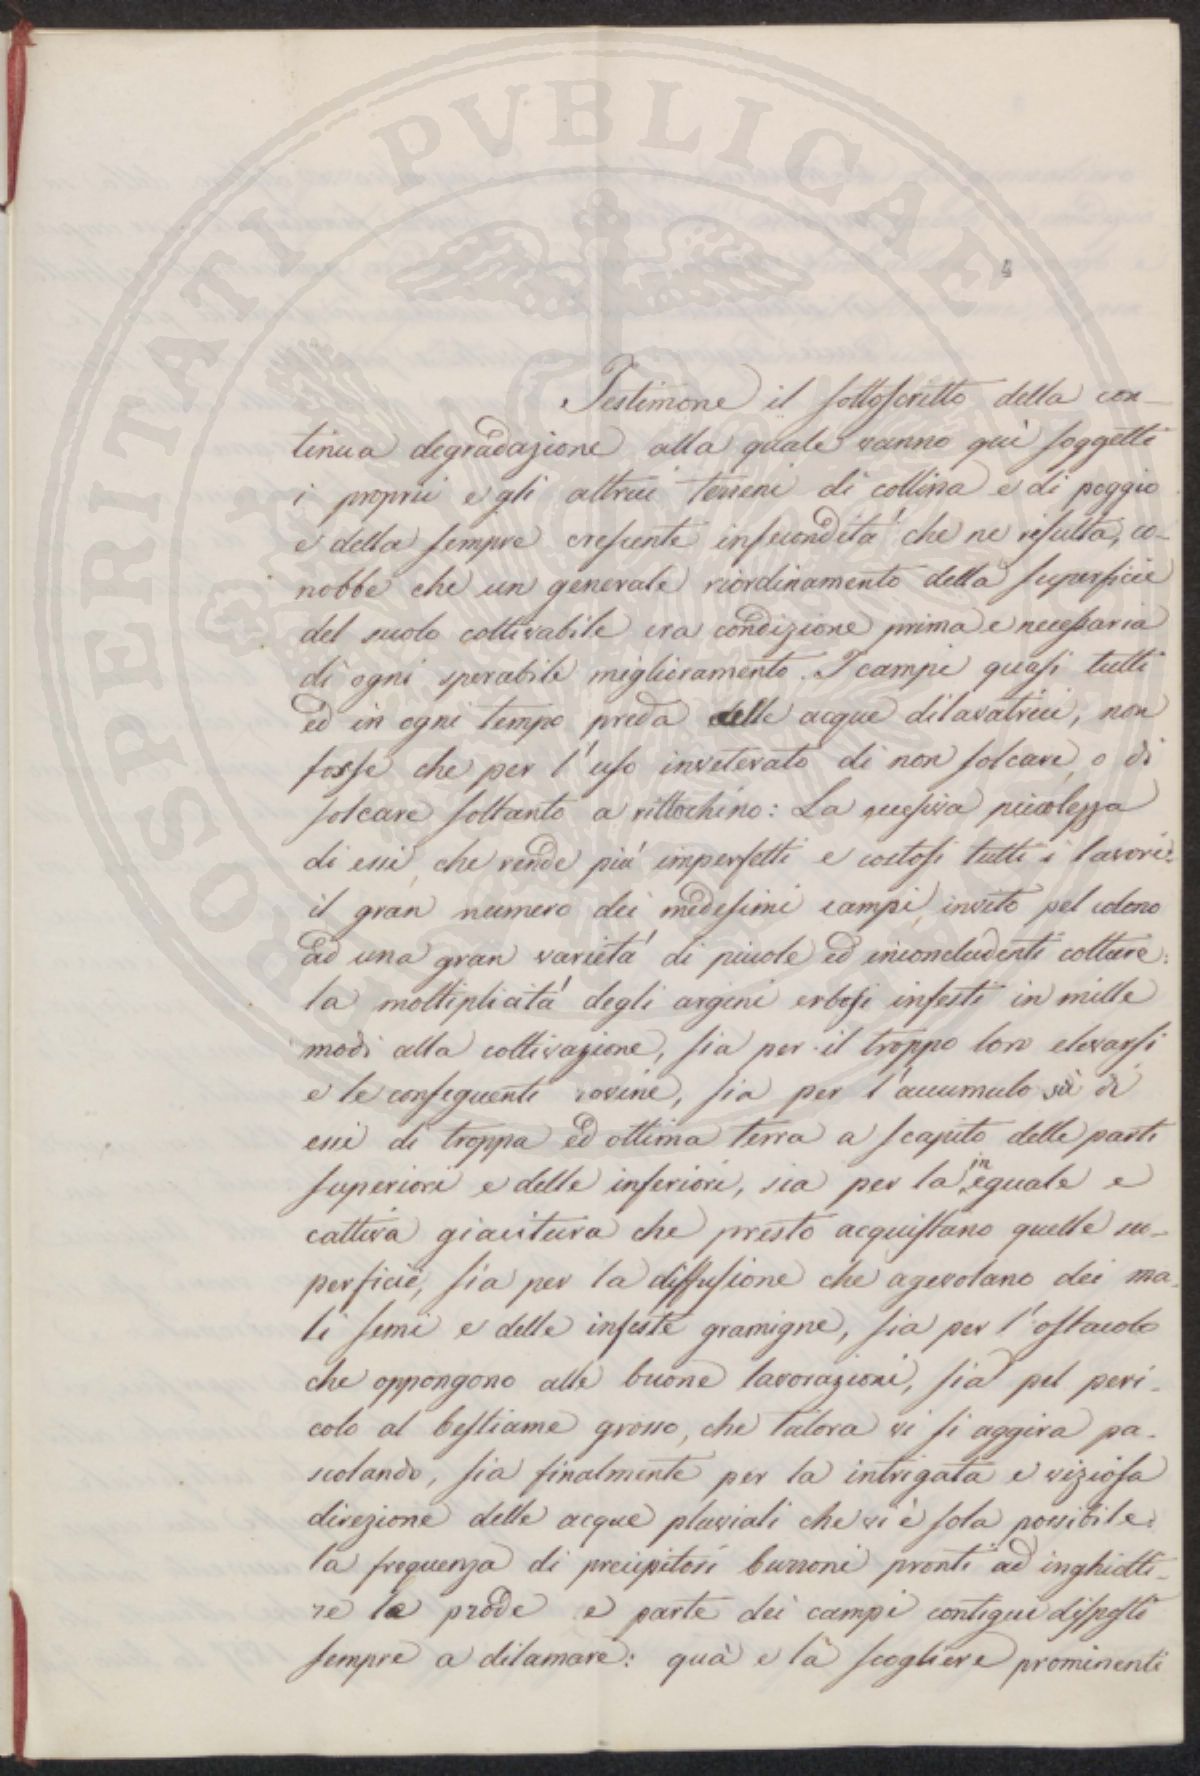 PROSPERITATI PUBLICAE
4
Testimone il sottoscritto della con-
tinua degradazione alla quale vanno quì soggetti
i proprii e gli altrui terreni di collina e di poggio
e della sempre crescente infecondità che ne risulta, co-
nobbe che un generale riordinamento della superficie
del suolo coltivabile era condizione prima e necessaria
di ogni sperabile miglioramento. I campi quasi tutti
ed in ogni tempo preda delle acque dilavatrici, non
fosse che per l'uso inveterato di non solcare, o di
solcare soltanto a rittochino: La eccessiva piccolezza
di essi, che rende più imperfetti e costosi tutti i lavori:
il gran numero dei medesimi campi, invito pel colono
ad una gran varietà di piccole ed inconcludenti colture:
la moltiplicità degli argini erbosi infesti in mille
modi alla coltivazione, sia per il troppo loro elevarsi
e le conseguenti rovine, sia per l'accumulo sù di
essi di troppa ed ottima terra a scapito delle parti
superiori e delle inferiori, sia per la ineguale e
cattiva giacitura che presto acquistano quelle su-
perficie, sia per la diffusione che agevolano dei ma-
li semi e delle infeste gramigne, sia per l'ostacolo
che oppongono alle buone lavorazioni, sia pel peri-
colo al bestiame grosso, che talora vi si aggira pa-
scolando, sia finalmente per la intrigata e viziosa
direzione delle acque pluviali che vi è sola possibile:
la frequenza di precipitosi burroni pronti ad inghiotti-
re le prode e parte dei campi contigui disposti
sempre a dilamare: quà e là scogliere prominenti